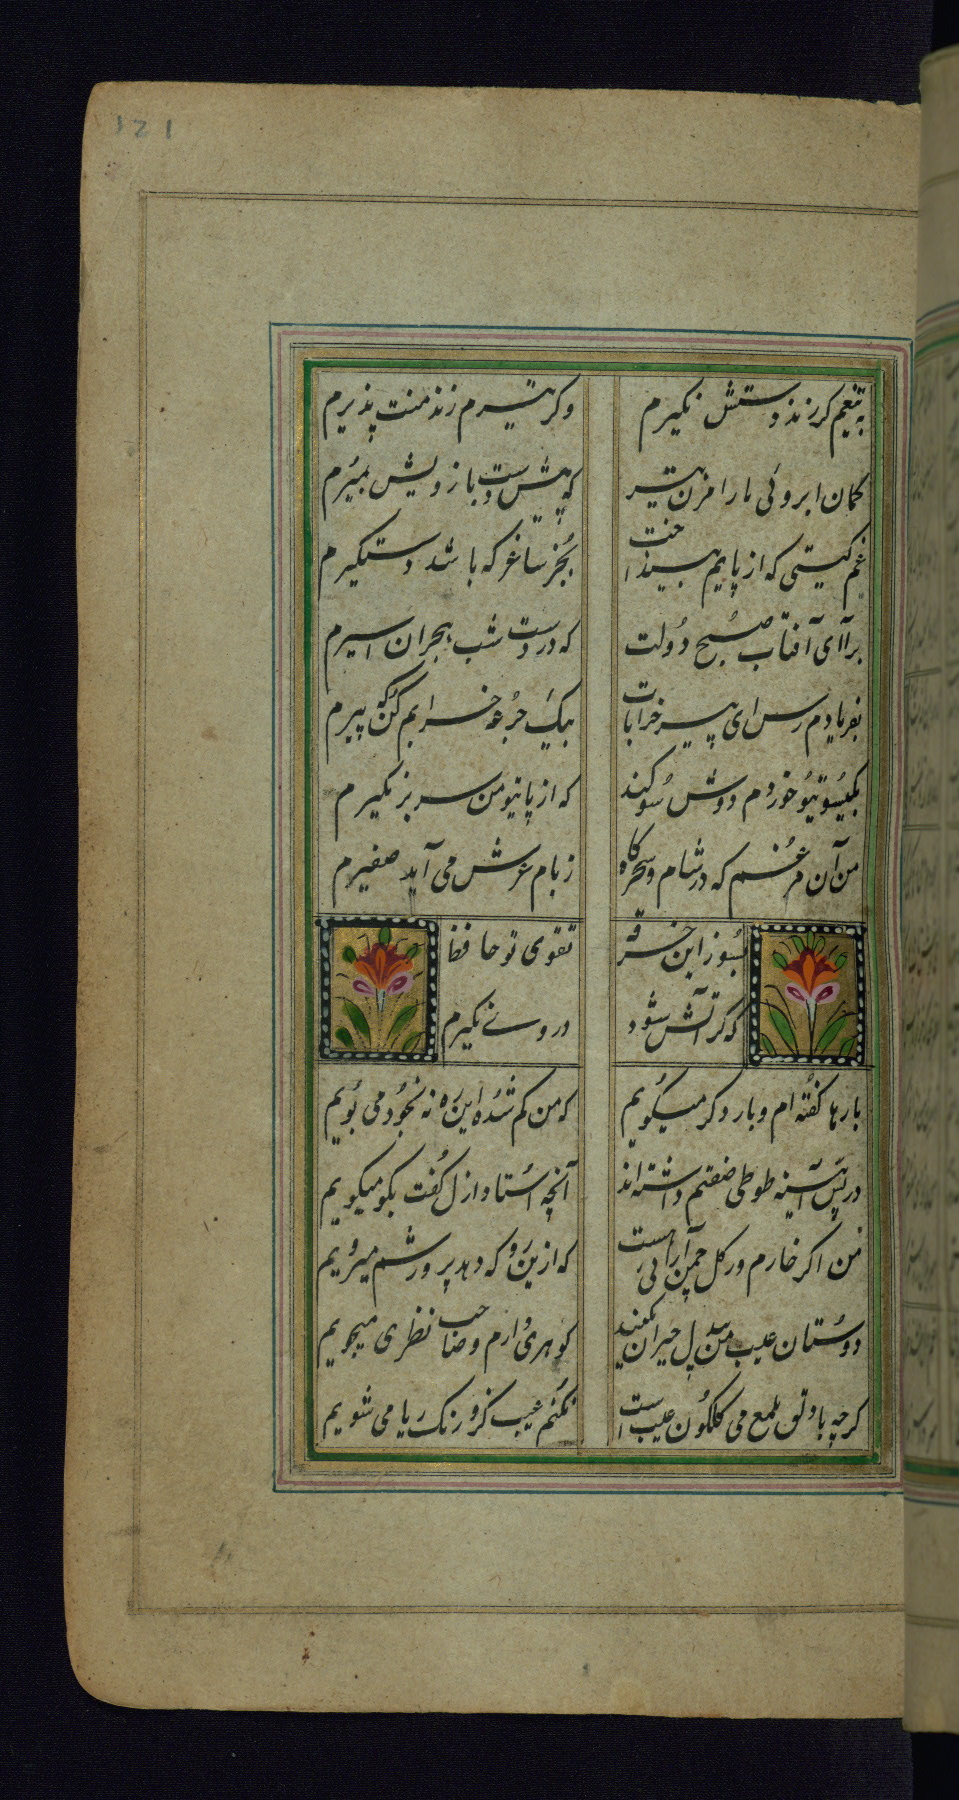 121
به تیغم کر زند دستش نکیرم
وکر تیرم زند منت پذیرم
کمان ابروئی ما را مزن تیر
که پیش دست بازویش بمیرم
غم کیتی که از پایم بینداخت
بجز ساغر که باشد دستکیرم
برآ ای آفتاب صبح دولت
که در دست شب هجران اسیرم
بفریادم رس ای پیر خرابات
بیک جرعه خرابم کن که پیرم
بکیسوی تو خوردم دوش سوکند
که از پای تو من سر بر نکیرم
من آن مرغم که در شام و سحرکاه
ز بام عرش می آید صفیرم
بسوز این خرقه
تقوی تو حافظ
که کر آتش شود
در وی نکیرم
بارها کفته ام و بار دکر میکویم
که من کم شده این ره نه بخود می پویم
در پس آینه طوطی صفتم داشته اند
آنچه استاد ازل کفت بکو میکویم
من اکر خارم ور کل چمن آرائی است
که ازین رو که دهد پرورشم میرویم
دوستان عیب من بیدل حیران مکنید
کوهری دارم و صاحب نظری میجویم
کرچه با دلق ملمع می کلکون عیب است
نکنم عیب کزو رنک ریا می شویم